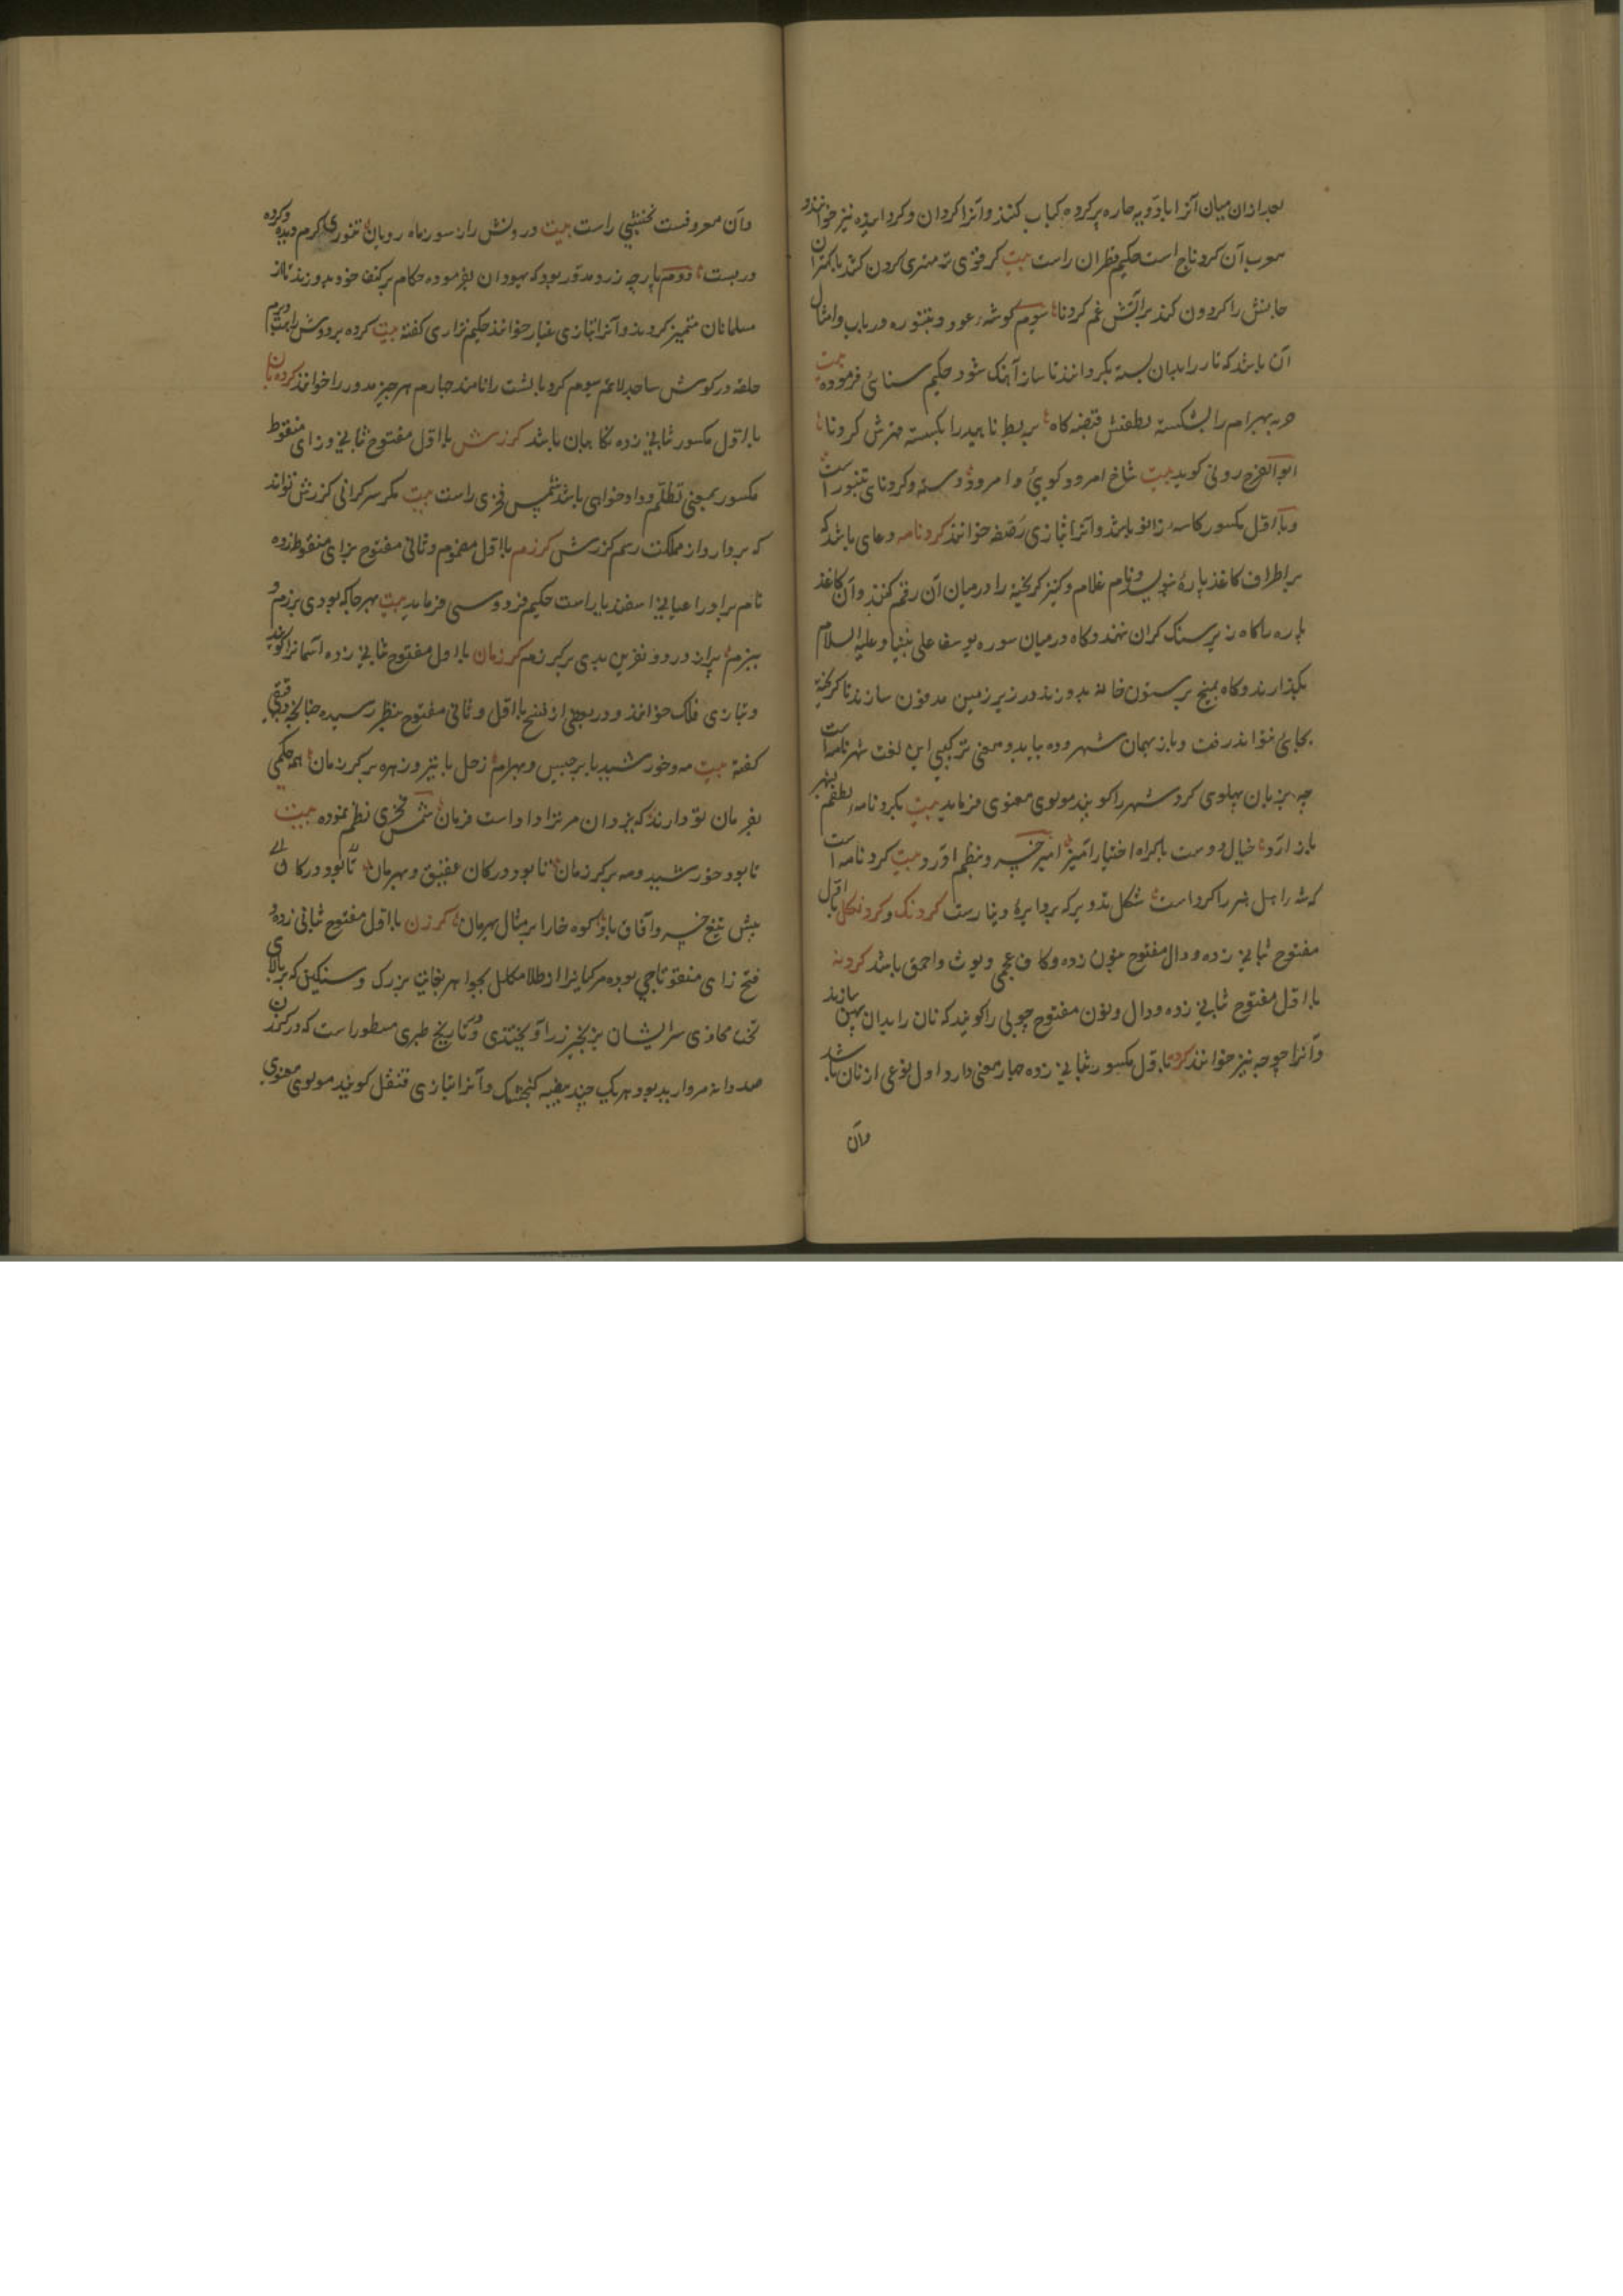 بعد ازان میان آنرا بادویه حاره پر کرده کباب کنند و آنرا کردان و کردانیده نیز خوانند و
معرب آن کردناج است حکیم قطران راست بیت کر فزی نه منری کردن کند با کمتران
جانش را کردون کند بر آتش غم کردنا سوم کوشهٔ عود و تنبوره و رباب و امثال
آن باشد که تار را بدان بسته بکردانند تا ساز آهنک شود حکیم سنائی فرموده بیت
حربه بهرام را بشکسته لطفش قبضه کاه بربط ناهید را بکسسته قهرش کردنا
ابو الفرج رونی کوید بیت شاخ امرود کویی و امرود دسته و کردنای تنبورست
و با اول مکسور کاسهٔ زانو باشد و آنرا بتازی رضفه خوانند کردنامه دعای باشد که
بر اطراف کاغذ پارهٔ نویسند و نام غلام و کنیز کریخته را در میان آن رقم کنند و آن کاغذ
پاره را کاه زیر سنک کران نهند و کاه در میان سوره یوسف علی نبینا و علیه السلام
بکذارند و کاه بمیخ بر ستون خانه بدوزند و در زیر زمین مدفون سازند تا کریخته
بجایی نتواند رفت و باز بهمان شهر و ده بیاید و معنی ترکیبی این لغت شهرنامه است
چه بزبان پهلوی کرد شهر را کویند مولوی معنوی فرماید بیت بکردنامهٔ لطفم بشهر
باز آرد خیال دوست باکراه اختیار آمیز امیر خسرو بنظم آورد بیت کردنامه است
که شه را بدل شیر را کرد است شکل تدویر که بر دایرهٔ دینارست کردنک و کردنکل با اول
مفتوح بثانی زده و دال مفتوح بنون زده و کاف عجمی دیوث و احمق باشد کردنه
با اول مفتوح بثانی زده و دال و نون مفتوح چوبی را کویند که نان را بدان پهن سازند
و آنرا چوجه نیز خوانند کرده با اول مکسور بثانی زده چهار معنی دارد اول نوعی از نان باشد
وآن
وآن معروفست نخشبی راست بیت درونش راز سور ماه رویان تنوری کرم دیده و کرده
دربست دوم پارچه زرد مدور بود که یهودان بفرموده حکام بر کتف خود بدوزند تا از
مسلمانان متمیز کردند و آنرا بتازی غیار خوانند حکیم نزاری کفته بیت کرده بر دوش راهب
حلقه در کوش ساجد لائمه سوم کرد بالشت را نامند چهارم هر چیز مدور را خوانند کرده بان
با اول مکسور بثانی زده نکاهبان باشد کرزش با اول مفتوح بثانی و زای منقوط
مکسور بمعنی تظلم و دادخواهی باشد شمس فخری راست بیت مکر سرکرانی کزرش تواند
که بردارد از مملکت رسم کرزش کرزم با اول مضموم و ثانی مفتوح بزای منقوط زده
نام برادر اعیانی اسفندیار است حکیم فردوسی فرماید بیت بهر جا که بودی برزم و
ببزم پر از درد و نفرین بدی بر کرزم کرزمان با اول مفتوح بثانی زده آسمانرا کویند
و بتازی فلک خوانند و در بعضی از نسخ با اول و ثانی مفتوح بنظر رسیده چنانچه دقیقی
کفته بیت مه و خورشید با برجیس و بهرام زحل با تیر و زهره بر کرزمان همه حکمی
بفرمان تو دارند که یزدان مر ترا داد است فرمان شمس فخری نظم نموده بیت
تا بود خورشید و مه بر کرزمان تا بود در کان عقیق و بهرمان تا بود در کان
پیش تیغ خسرو آفاق باد کوه خارا بر مثال بهرمان کرزن با اول مفتوح بثانی زده و
فتح زای منقوط تاجی بوده مر کیانرا از طلا مکلل بجواهر بغایت بزرک و سنکین که بر بالای
تخت محاذی سر ایشان بزنجیر زر آویختندی و در تاریخ طبری مسطور است که در کرزن
صد دانه مروارید بود هر یک چند بیضه کنجشک و آنرا بتازی قنقل کویند مولوی معنوی